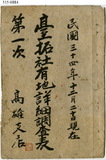 民國三十四年十二月二日現在
臺拓社有地詳細調書表
第一次
高雄支店